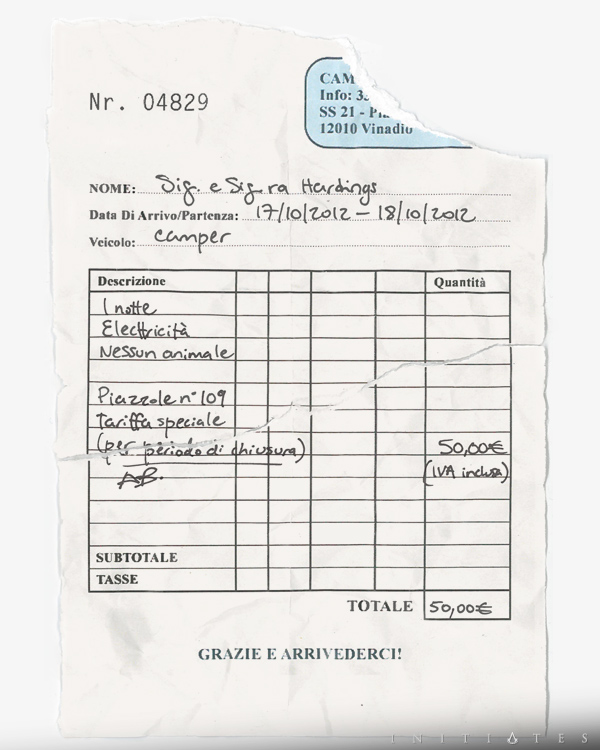 Nr. 04829
CAM
Info: 3
SS 21 -
12010 Vinadio
NOME: Sig. e Sig.ra Hardings
Data Di Arrivo/Partenza: 17/10/2012 – 18/10/2012
Veicolo: camper
Descrizione Quantità
1 notte
Electtricità
Nessun animale
Piazzole n° 109
tariffa speciale
(per periodo di chiusura) 50,00€
AB. (IVA inclusa)
SUBTOTALE
TASSE
TOTALE 50,00€
GRAZIE E ARRIVEDERCI!
INITIATES